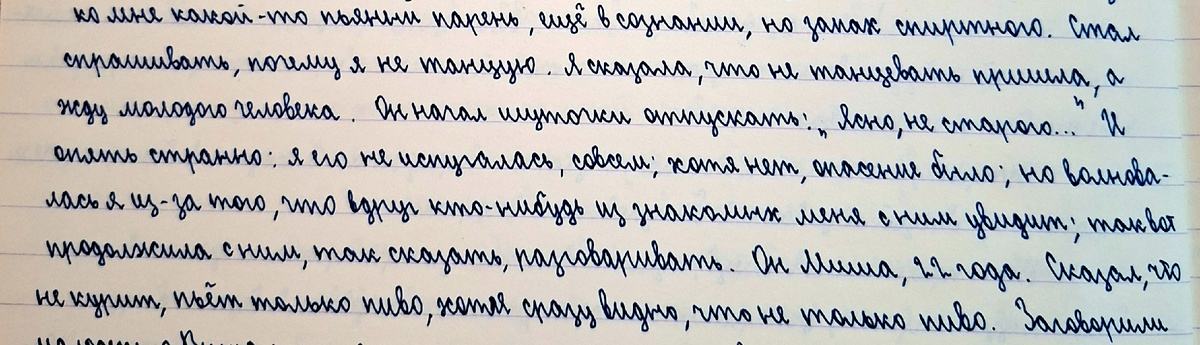 ко мне какой-то пьяный парень, ещё в сознании, но запах спиртного. Стал
спрашивать, почему я не танцую. Я сказала, что не танцевать пришла, а
жду молодого человека. Он начал шуточки отпускать: „Ясно, не старого..." И
опять странно: я его не испугалась, совсем; хотя нет, опасение было; но волнова-
лась я из-за того, что вдруг кто-нибудь из знакомых меня с ним увидит; так вот
продолжила с ним, так сказать, разговаривать. Он Миша, 22 года. Сказал, что
не курит, пьёт только пиво, хотя сразу видно, что не только пиво. Заговорили